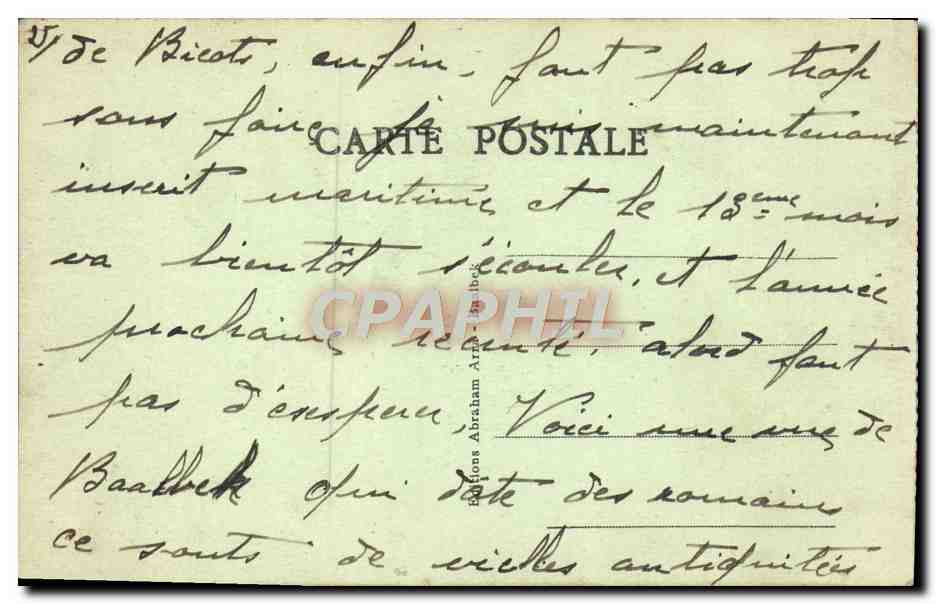 25/ de Bicots, enfin, faut pas trop
sans faire, je suis maintenant
CARTE POSTALE
inscrit maritime et le 18eme mois
va bientôt s'écouler, et l'année
CPAPHIL
prochaine, alord faut
pas d'ésesperer, Voici une vue de
Baalbek qui date des romains
ce sonts de vielles antiquitées
Editions Abraham Baalbek